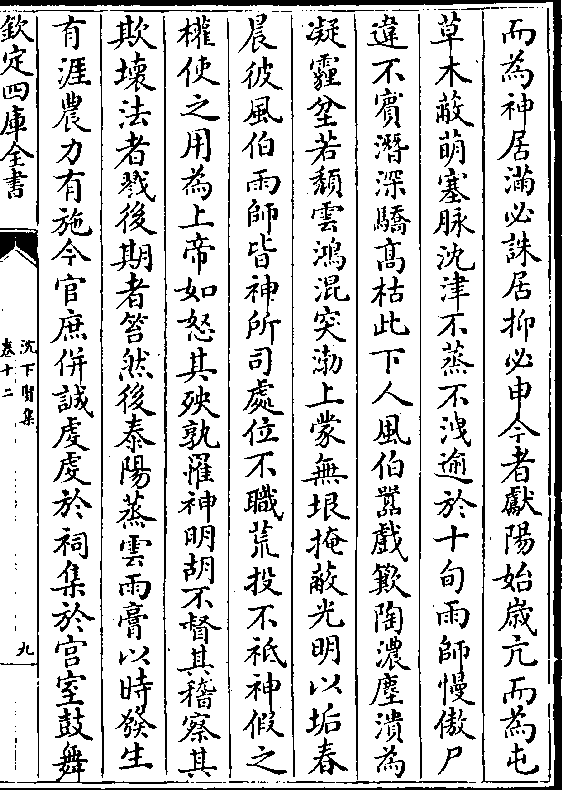 而為神居滿必誅居抑必申今者獻陽始歳亢而為屯
草木蔽萌塞脉沈津不蒸不洩逾於十旬雨師慢傲尸
違不賓潛深驕髙枯此下人風伯嚚戲歘陶濃塵濆為
凝霾坌若頽雲鴻混突渤上蒙無垠掩蔽光明以垢春
晨彼風伯雨師皆神所司處位不職荒投不祗神假之
權使之用為上帝如怒其殃孰罹神明胡不督其稽察其
欺壊法者戮後期者笞然後泰陽蒸雲雨膏以時發生
有涯農力有施今官庶併誠虔虔於祠集於宫室鼓舞
欽定四庫全書
沈下賢集
卷十二
九